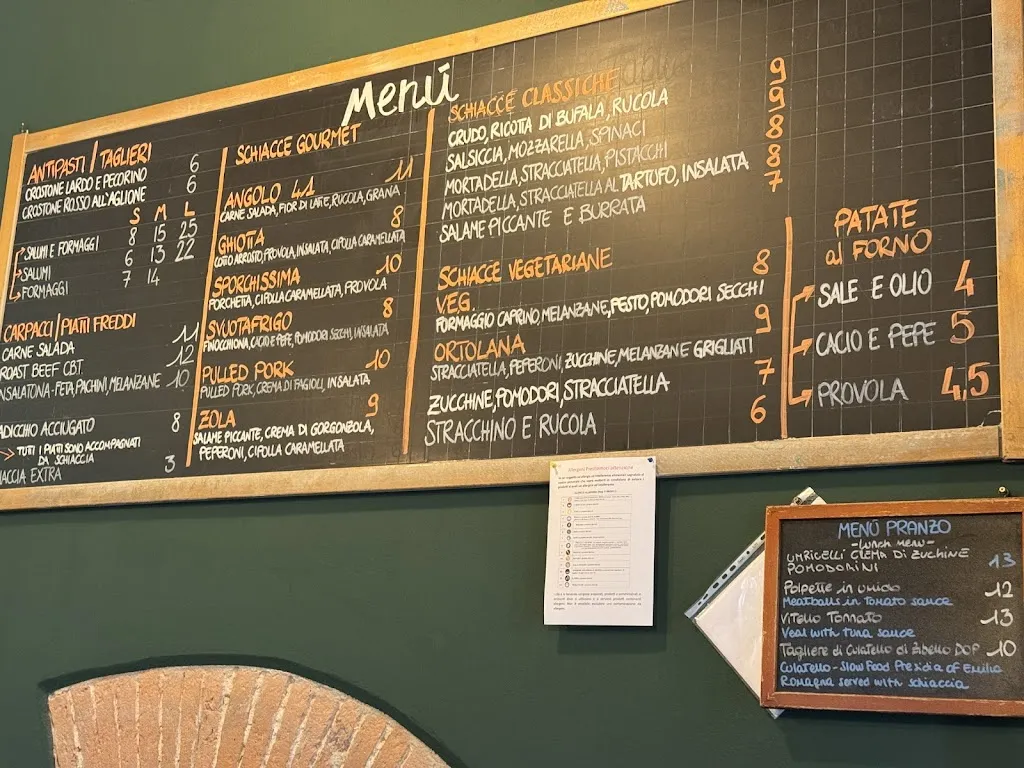 Menú
ANTIPASTI / TAGLIERI
CROSTONE LARDO E PECORINO 6
CROSTONE ROSSO ALL'AGLIONE 6
S M L
SALUMI E FORMAGGI 8 15 25
SALUMI 6 13 22
FORMAGGI 7 14
CARPACCI / PIATTI FREDDI
CARNE SALADA 11
ROAST BEEF CBT. 12
INSALATONA-FETA, PACHINI, MELANZANE 10
ADICCHIO ACCIUGATO 8
TUTTI I PIATTI SONO ACCOMPAGNATI
DA SCHIACCIA
IACCIA EXTRA 3
SCHIACCE GOURMET
ANGOLO 41 11
CARNE SALADA, FIOR DI LATTE, RUCOLA, GRANA
GHIOTTA 8
COTTO ARROSTO, PROVOLA, INSALATA, CIPOLLA CARAMELLATA
SPORCHISSIMA 10
PORCHETTA, CIPOLLA CARAMELLATA, PROVOLA
SVUOTAFRIGO 8
FINOCCHIONA, CACIO E PEPE, POMODORI SECCHI, INSALATA
PULLED PORK 10
PULLED PORK, CREMA DI FAGIOLI, INSALATA
ZOLA 9
SALAME PICCANTE, CREMA DI GORGONZOLA,
PEPERONI, CIPOLLA CARAMELLATA
SCHIACCE CLASSICHE
CRUDO, RICOTTA DI BUFALA, RUCOLA 9
SALSICCIA, MOZZARELLA, SPINACI 9
MORTADELLA, STRACCIATELLA, PISTACCHI 8
MORTADELLA, STRACCIATELLA AL TARTUFO, INSALATA 8
SALAME PICCANTE E BURRATA 7
SCHIACCE VEGETARIANE
VEG. 8
FORMAGGIO CAPRINO, MELANZANE, PESTO, POMODORI SECCHI
ORTOLANA 9
STRACCIATELLA, PEPERONI, ZUCCHINE, MELANZANE GRIGLIATI
ZUCCHINE, POMODORI, STRACCIATELLA 7
STRACCHINO E RUCOLA 6
PATATE
al FORNO
SALE E OLIO 4
CACIO E PEPE 5
PROVOLA 4,5
MENÚ PRANZO
-LUNCH MENU-
UMRICELLI CREMA DI ZUCHINE
POMODORINI 13
Polpette in umido 12
Meatballs in Tomato sauce
Vitello Tonnato 13
Veal with tuna sauce
Tagliere di Culatello di Zibello DOP 10
Culatello - Slow Food Presidia of Emilia
Romagna served with schiaccia